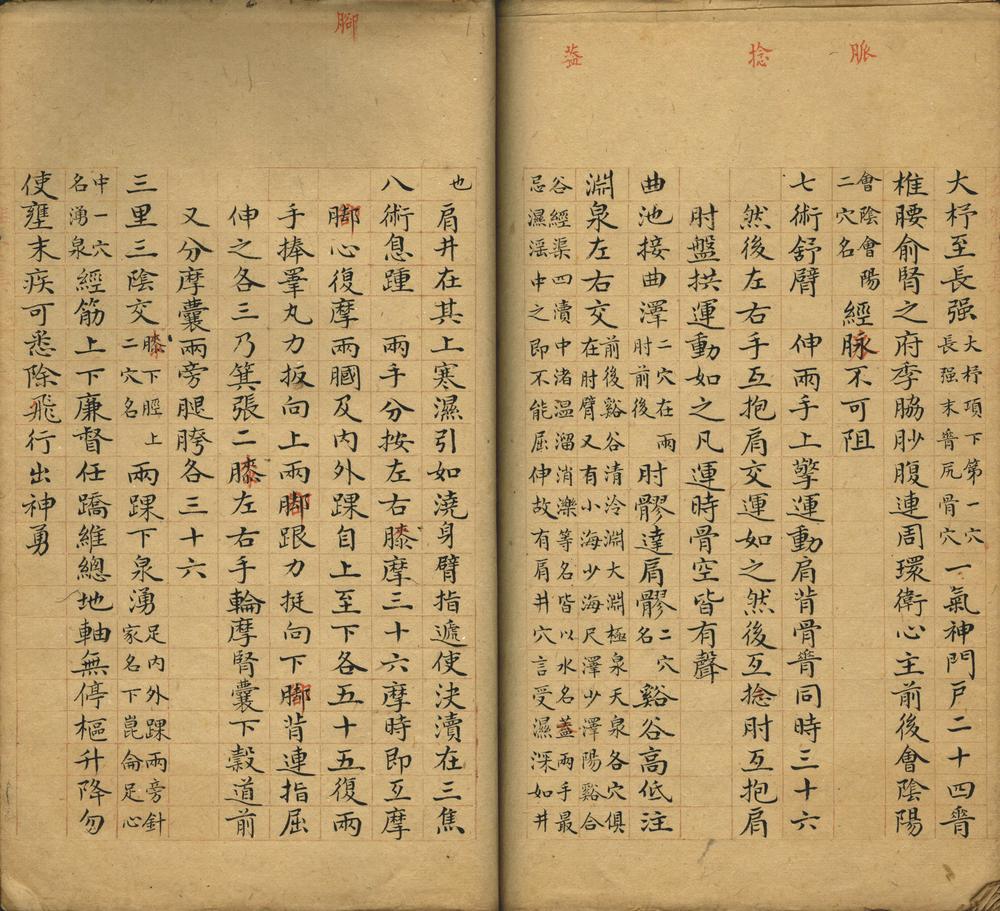 脈
捻
蓋
大杼至長强大杼項下第一穴長强末脊尻骨穴一氣神門戸二十四脊
椎腰俞腎之府季脇眇腹連周環衛心主前後會陰陽
會陰會陽二穴名經脉不可阻
七術舒臂　伸兩手上擎運動肩背骨脊同時三十六
然後左右手互抱肩交運如之然後互捻肘互抱肩
肘盤拱運動如之凡運時骨空皆有聲
曲池接曲澤二穴在兩肘前後肘髎達肩髎二穴名谿谷高低注
淵泉左右交前後谿谷清泠淵大淵極泉天泉各穴俱在肘臂又有小海少海尺澤少澤陽谿合
谷經渠四瀆中渚温溜消濼等名皆以水名蓋兩手最忌濕淫中之即不能屈伸故有肩井穴言受濕深如井
腳
也肩井在其上寒濕引如澆身臂指遞使決瀆在三焦
八術息踵　兩手分按左右膝摩三十六摩時即互摩
脚心復摩兩膕及内外踝自上至下各五十五復兩
手捧睪丸力扳向上兩脚跟力挺向下脚背連指屈
伸之各三乃箕張二膝左右手輪摩腎囊下穀道前
又分摩囊兩旁腿胯各三十六
三里三陰交膝下脛上二穴名兩踝下泉湧足内外踝兩旁針家名下崑侖足心
中一穴名湧泉經筋上下廉督任蹻維總地軸無停樞升降勿
使壅末疾可悉除飛行出神勇